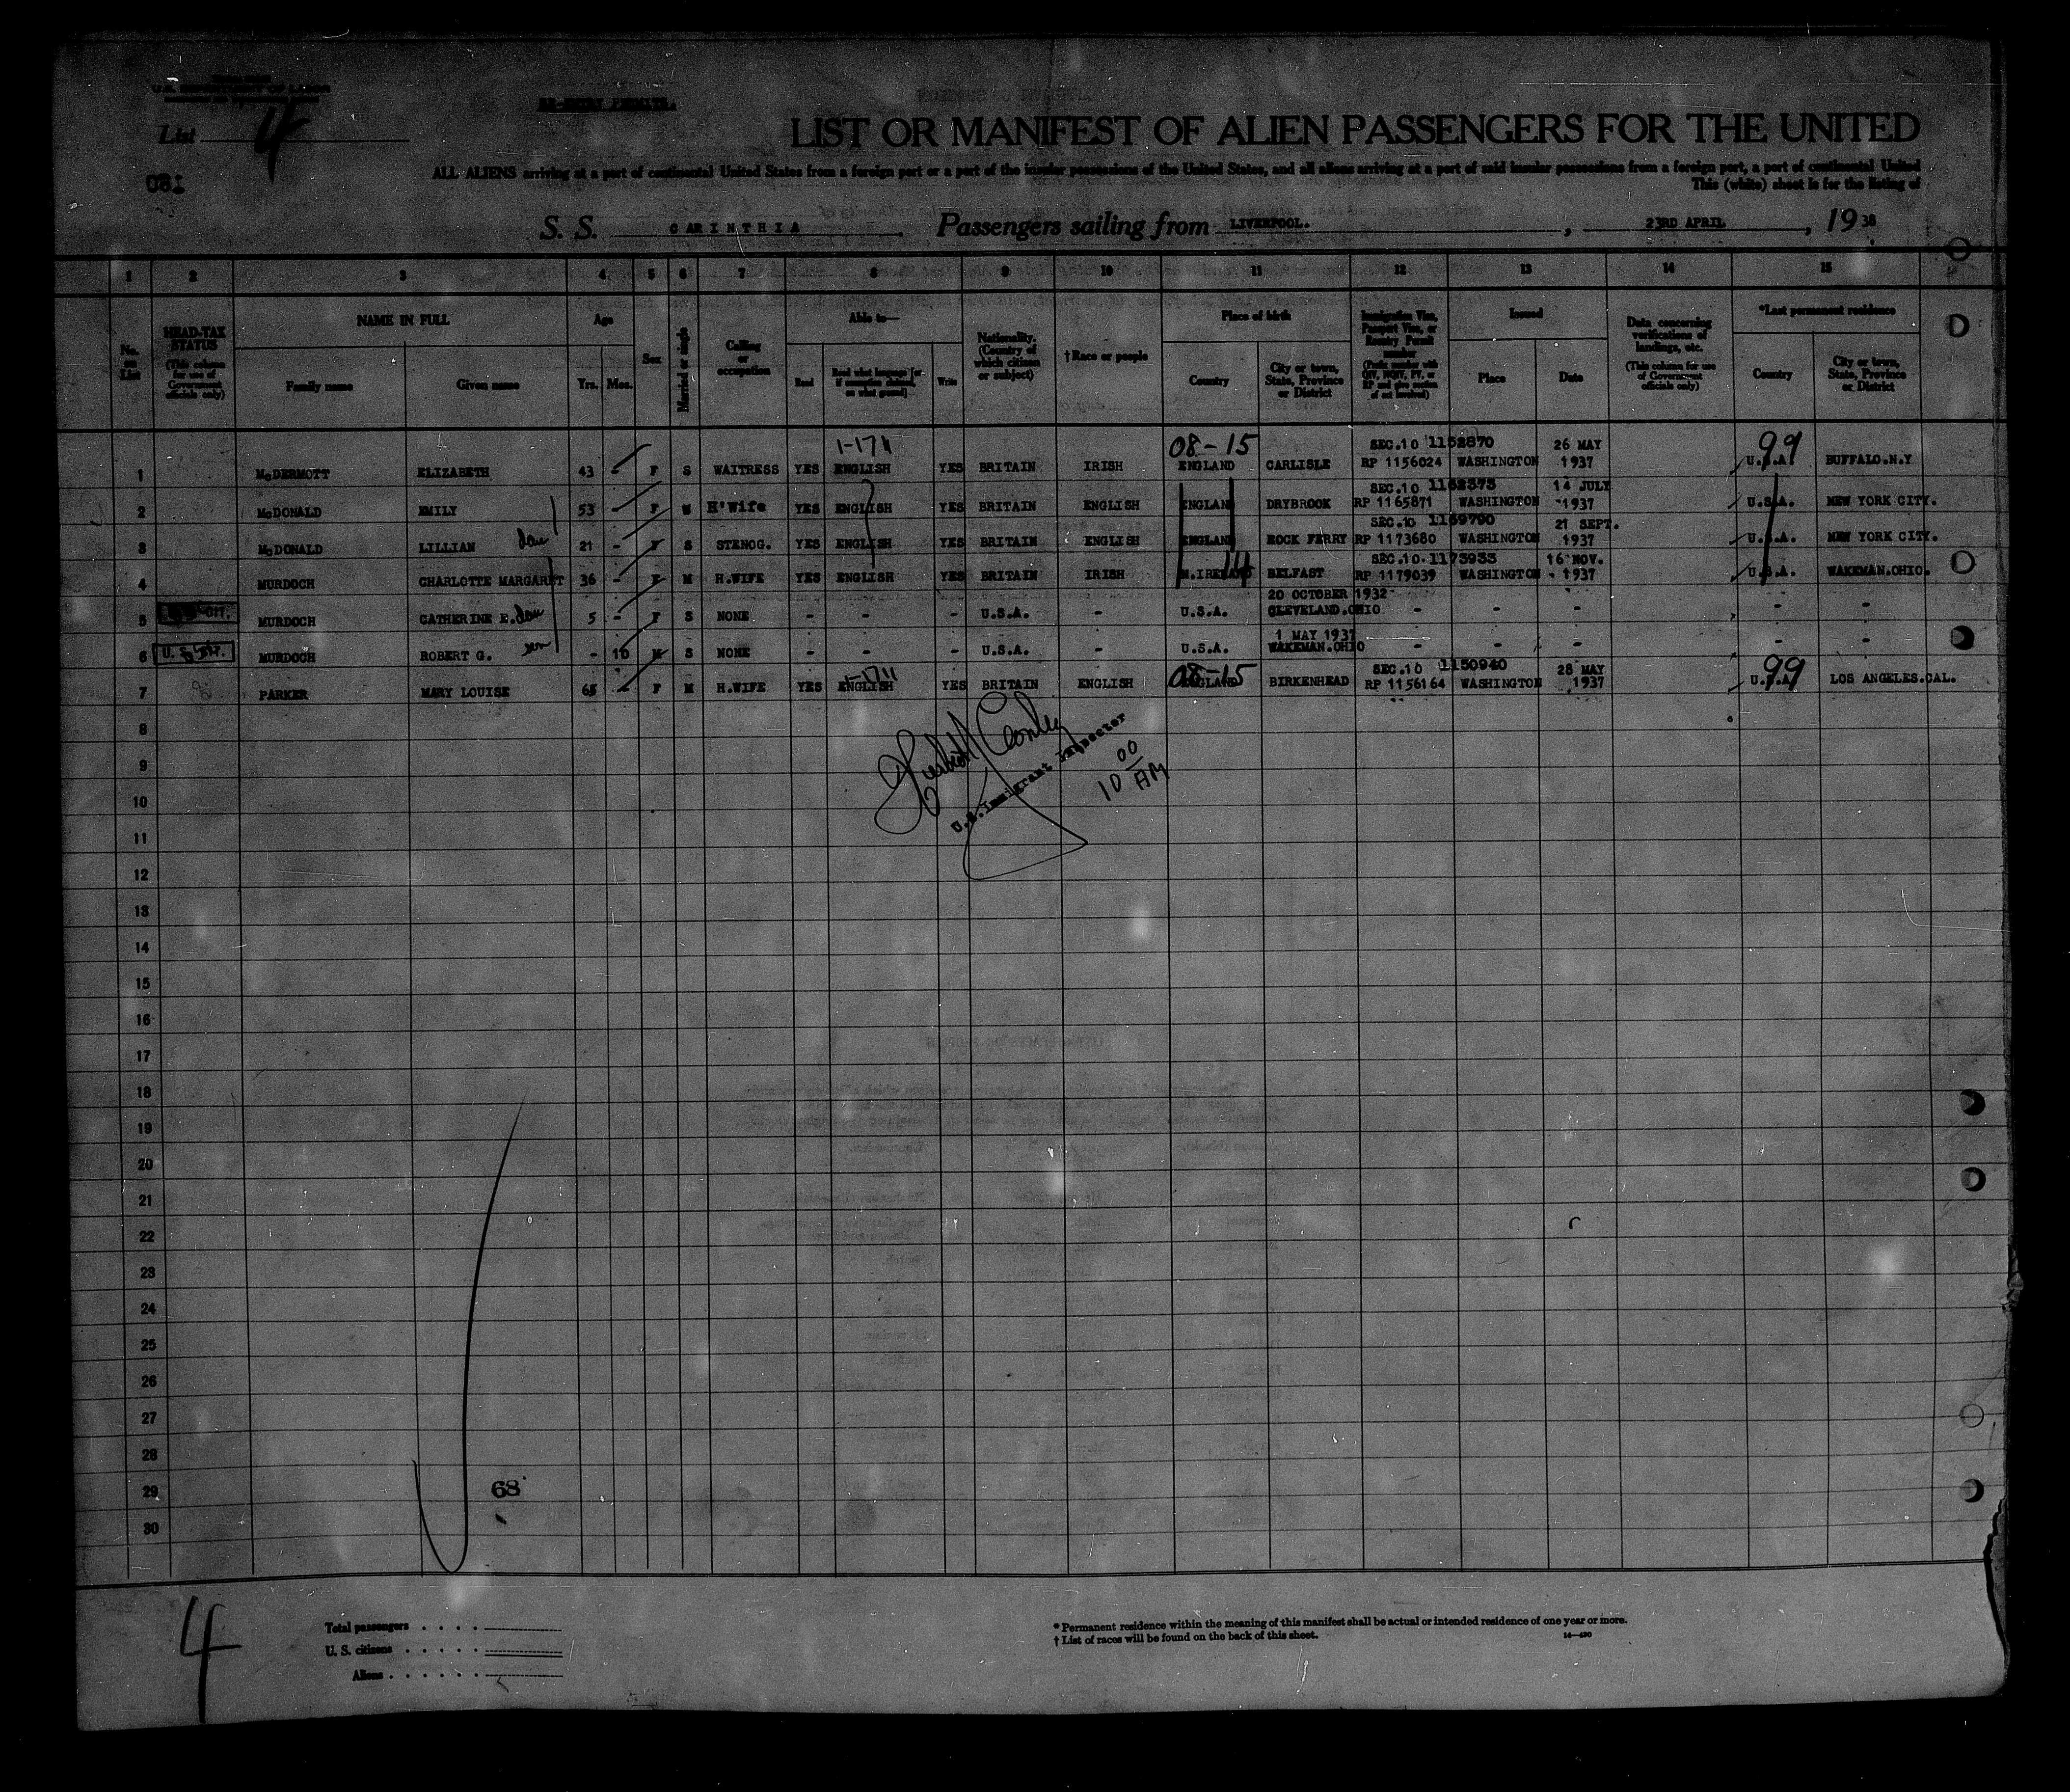 U.S. DEPARTMENT OF LABOR
RE-ENTRY PERMITS.
List 4
LIST OR MANIFEST OF ALIEN PASSENGERS FOR THE UNITED
ALL ALIENS arriving at a port of continental United States from a foreign port or a port of the insular possessions of the United States, and all aliens arriving at a port of said insular possessions from a foreign port, a port of continental United
081
This (white) sheet is for the listing of
S. S. CARINTHIA Passengers sailing from LIVERPOOL. , 23RD APRIL , 1938
1 2 3 4 5 6 7 8 9 10 11 12 13 14 15
No. on List
HEAD-TAX STATUS (This column for use of Government officials only)
NAME IN FULL
Family name Given name
Age
Yrs. Mos.
Sex
Married or single
Calling or occupation
Able to—
Read Read what language [or if exemption claimed, on what ground] Write
Nationality. (Country of which citizen or subject)
† Race or people
Place of birth
Country City or town, State, Province or District
Immigration Visa, Passport Visa, or Reentry Permit number
Issued
Place Date
Data concerning verifications of landings, etc. (This column for use of Government officials only)
*Last permanent residence
Country City or town, State, Province or District
1-1711 08-15 SEC.10 1152870 26 MAY 99
1 McDERMOTT ELIZABETH 43 - F S WAITRESS YES ENGLISH YES BRITAIN IRISH ENGLAND CARLISLE RP 1156024 WASHINGTON 1937 U.S.A. BUFFALO.N.Y
SEC.10 1162373 14 JULY
2 McDONALD EMILY 53 - F W H'Wife YES ENGLISH YES BRITAIN ENGLISH ENGLAND DRYBROOK RP 1165871 WASHINGTON 1937 U.S.A. NEW YORK CITY.
SEC.10 1169790 21 SEPT.
3 McDONALD LILLIAN dau 21 - F S STENOG. YES ENGLISH YES BRITAIN ENGLISH ENGLAND ROCK FERRY RP 1173680 WASHINGTON 1937 U.S.A. NEW YORK CITY.
14 SEC.10. 1173933 16 NOV.
4 MURDOCH CHARLOTTE MARGARET 36 - F M H.WIFE YES ENGLISH YES BRITAIN IRISH N.IRELAND BELFAST RP 1179039 WASHINGTON 1937 U.S.A. WAKEMAN.OHIO.
20 OCTOBER 1932
5 MURDOCH CATHERINE E. dau 5 - F S NONE - - - U.S.A. - U.S.A. CLEVELAND.OHIO - - - - -
1 MAY 1937
6 U. S. CIT. MURDOCH ROBERT G. son - 10 M S NONE - - - U.S.A. - U.S.A. WAKEMAN.OHIO - - - - -
1-1711 08-15 SEC.10 1150940 28 MAY 99
7 PARKER MARY LOUISE 65 - F M H.WIFE YES ENGLISH YES BRITAIN ENGLISH ENGLAND BIRKENHEAD RP 1156164 WASHINGTON 1937 U.S.A. LOS ANGELES.CAL.
8
U.S. Immigrant Inspector
10 00 AM
9
10
11
12
13
14
15
16
17
18
19
20
21
22
23
24
25
26
27
28
29 68
30
4
Total passengers
U. S. citizens
Aliens
* Permanent residence within the meaning of this manifest shall be actual or intended residence of one year or more.
† List of races will be found on the back of this sheet.